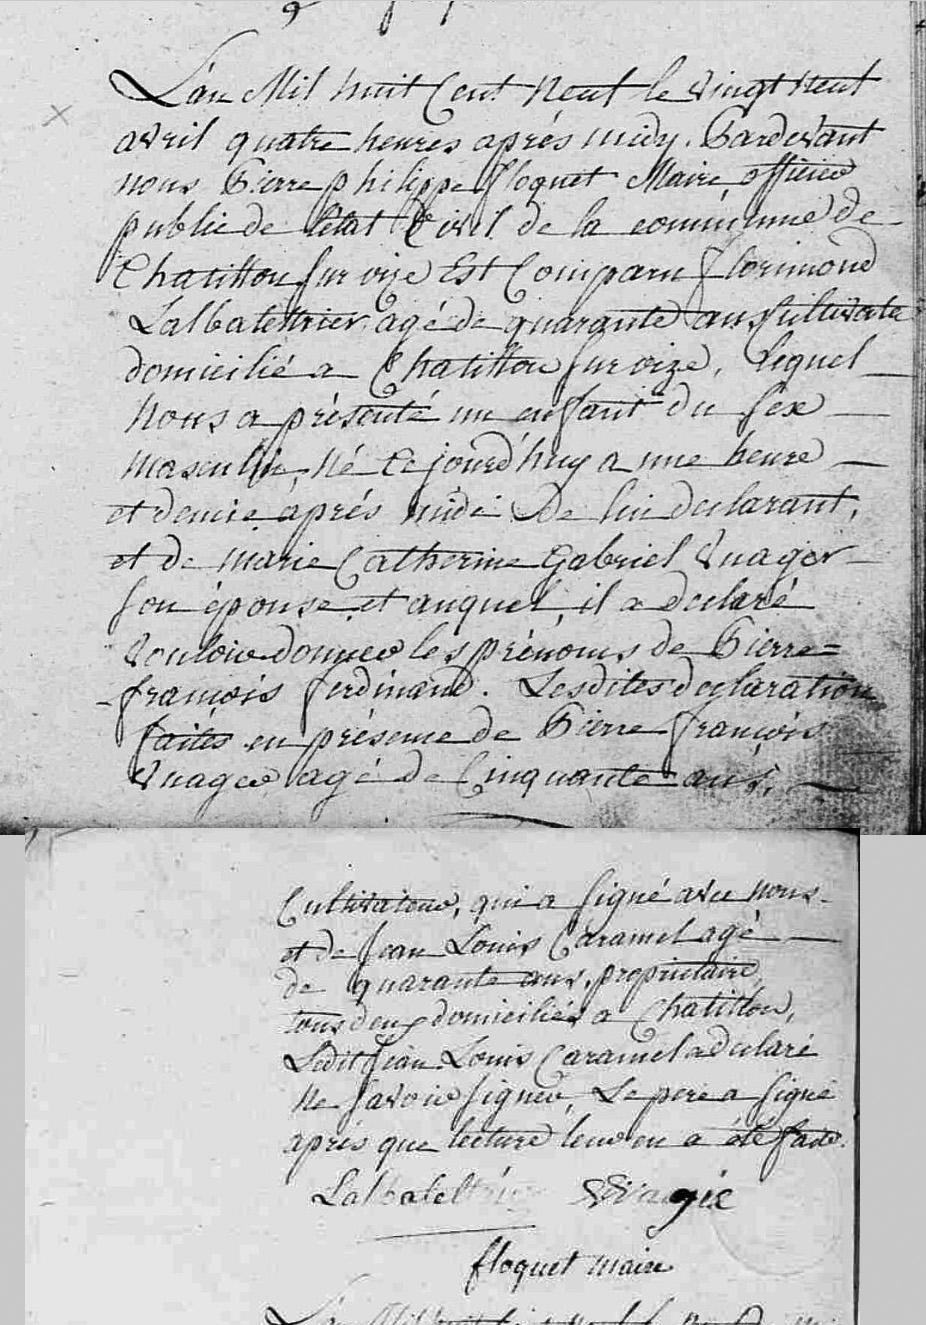 L'an Mil huit Cent Neuf le vingt neuf
avril quatre heures après midy. Pardevant
nous Pierre philippe floquet Maire, officier
public de l'état Civil de la commune de
Chatillon sur oize Est Comparu florimond
Lalbalettrier agé de quarante ans Cultivateur
domicilié a Chatillon sur oize, Lequel
nous a présenté un enfant du sex
masculin, né cejourd'huy a une heure
et demie après midi De lui declarant,
et de marie Catherine Gabriel Vuager
son épouse et auquel il a declaré
vouloir donner les prénoms de Pierre=
françois ferdinand. Lesdites declaration
faites en présence de Pierre françois
Vuager agé de Cinquante ans,
Cultivateur, qui a signé avec nous
et de Jean Louis Caramel agé
de quarante ans, propriétaire,
tous deux domiciliés a Chatillon,
Ledit Jean Louis Caramel a declaré
ne savoir signer, Le pere a signé
après que lecture leur en a été faite.
Lalbalettrier
floquet maire